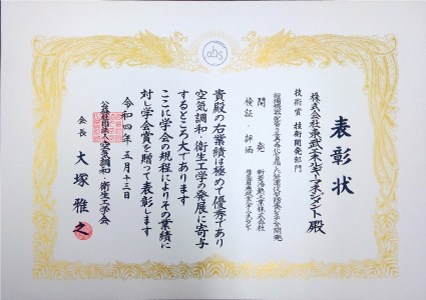 表彰状
株式会社東武エネルギーマネジメント殿
技術賞 技術開発部門
開発 新菱冷熱工業株式会社
検証・評価 株式会社東武エネルギーマネジメント
貴殿の右業績は極めて優秀であり
空気調和・衛生工学の発展に寄与
するところ大であります
ここに学会の規程によりその業績に
対し学会賞を贈って表彰します
令和四年五月十三日
公益社団法人空気調和・衛生工学会
会長 大塚雅之